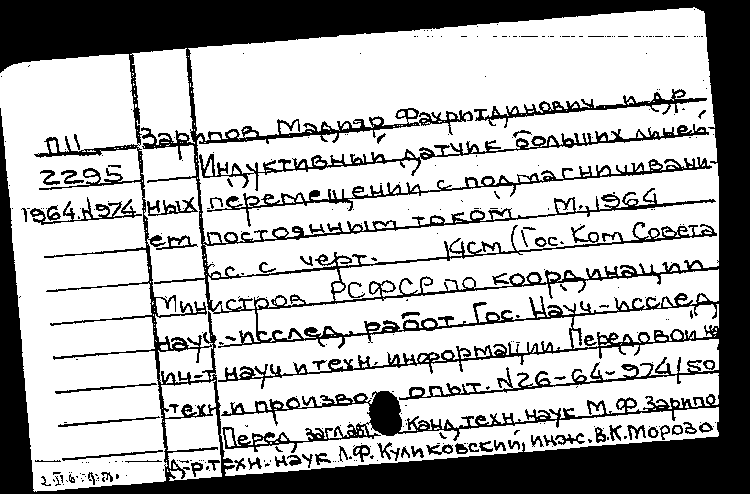 П11 Зарипов, Мадияр Фахритдинович и др
2295 Индуктивный датчик больших линей-
1964.N974 ных перемещении с подмагничивани-
ем постоянным током. М., 1964
6с. с черт. (Гос. Ком Совета
Министров РСФСР по координации
науч.-исслед. работ. Гос. Науч.-исслед
ин-т науч и техн. информации. Передовой
техн. и произво опыт. N26-64-974/50
Перед. заглав. Канд. техн. наук М.Ф. Зарипо
д-р техн. наук Л.Ф. Куликовский, инж. В.К. Морозо